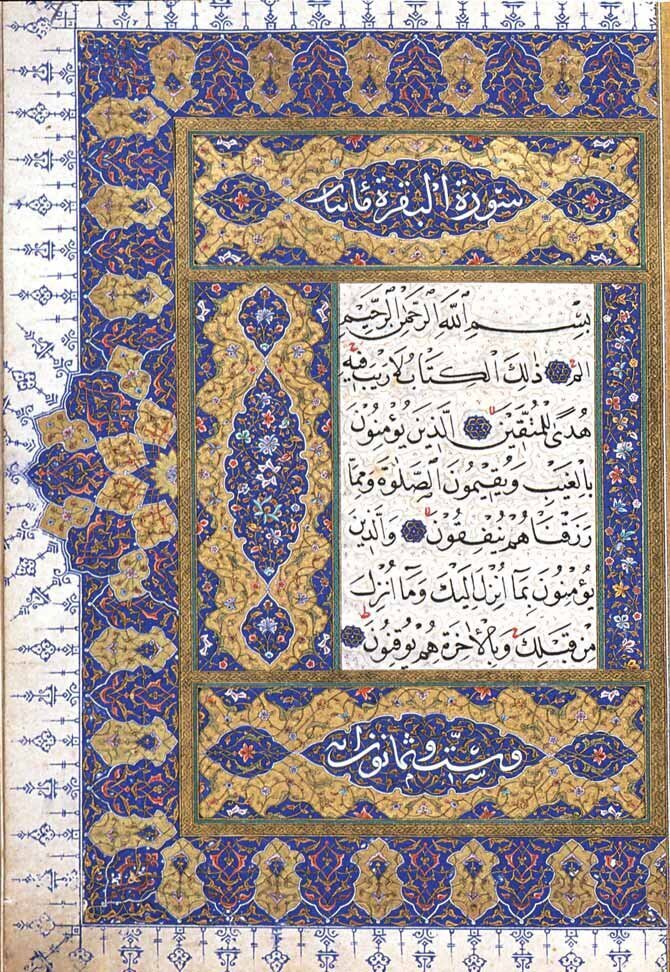 سورة البقرة مائتان
بِسْمِ اللهِ الرَّحْمٰنِ الرَّحِيمِ
الم ذٰلِكَ الْكِتَابُ لَارَيْبَ فِيهِ
هُدًى لِلْمُتَّقِينَ الَّذِينَ يُؤْمِنُونَ
بِالْغَيْبِ وَيُقِيمُونَ الصَّلٰوةَ وَمِمَّا
رَزَقْنَاهُمْ يُنْفِقُونَ وَالَّذِينَ
يُؤْمِنُونَ بِمَا اُنْزِلَ اِلَيْكَ وَمَا اُنْزِلَ
مِنْ قَبْلِكَ وَبِالْاٰخِرَةِ هُمْ يُوقِنُونَ
وستّ وثمانون آية